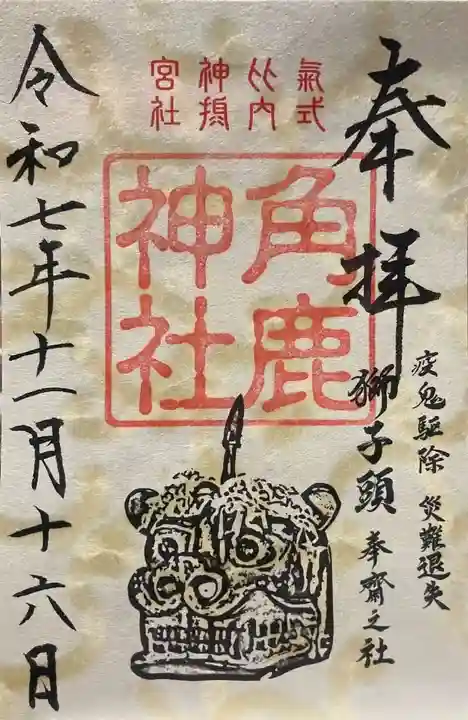 奉拝
疫鬼驅除 災難退失
獅子頭 奉齋之社
氣比神宮
式内摂社
角鹿
神社
令和七年十一月十六日